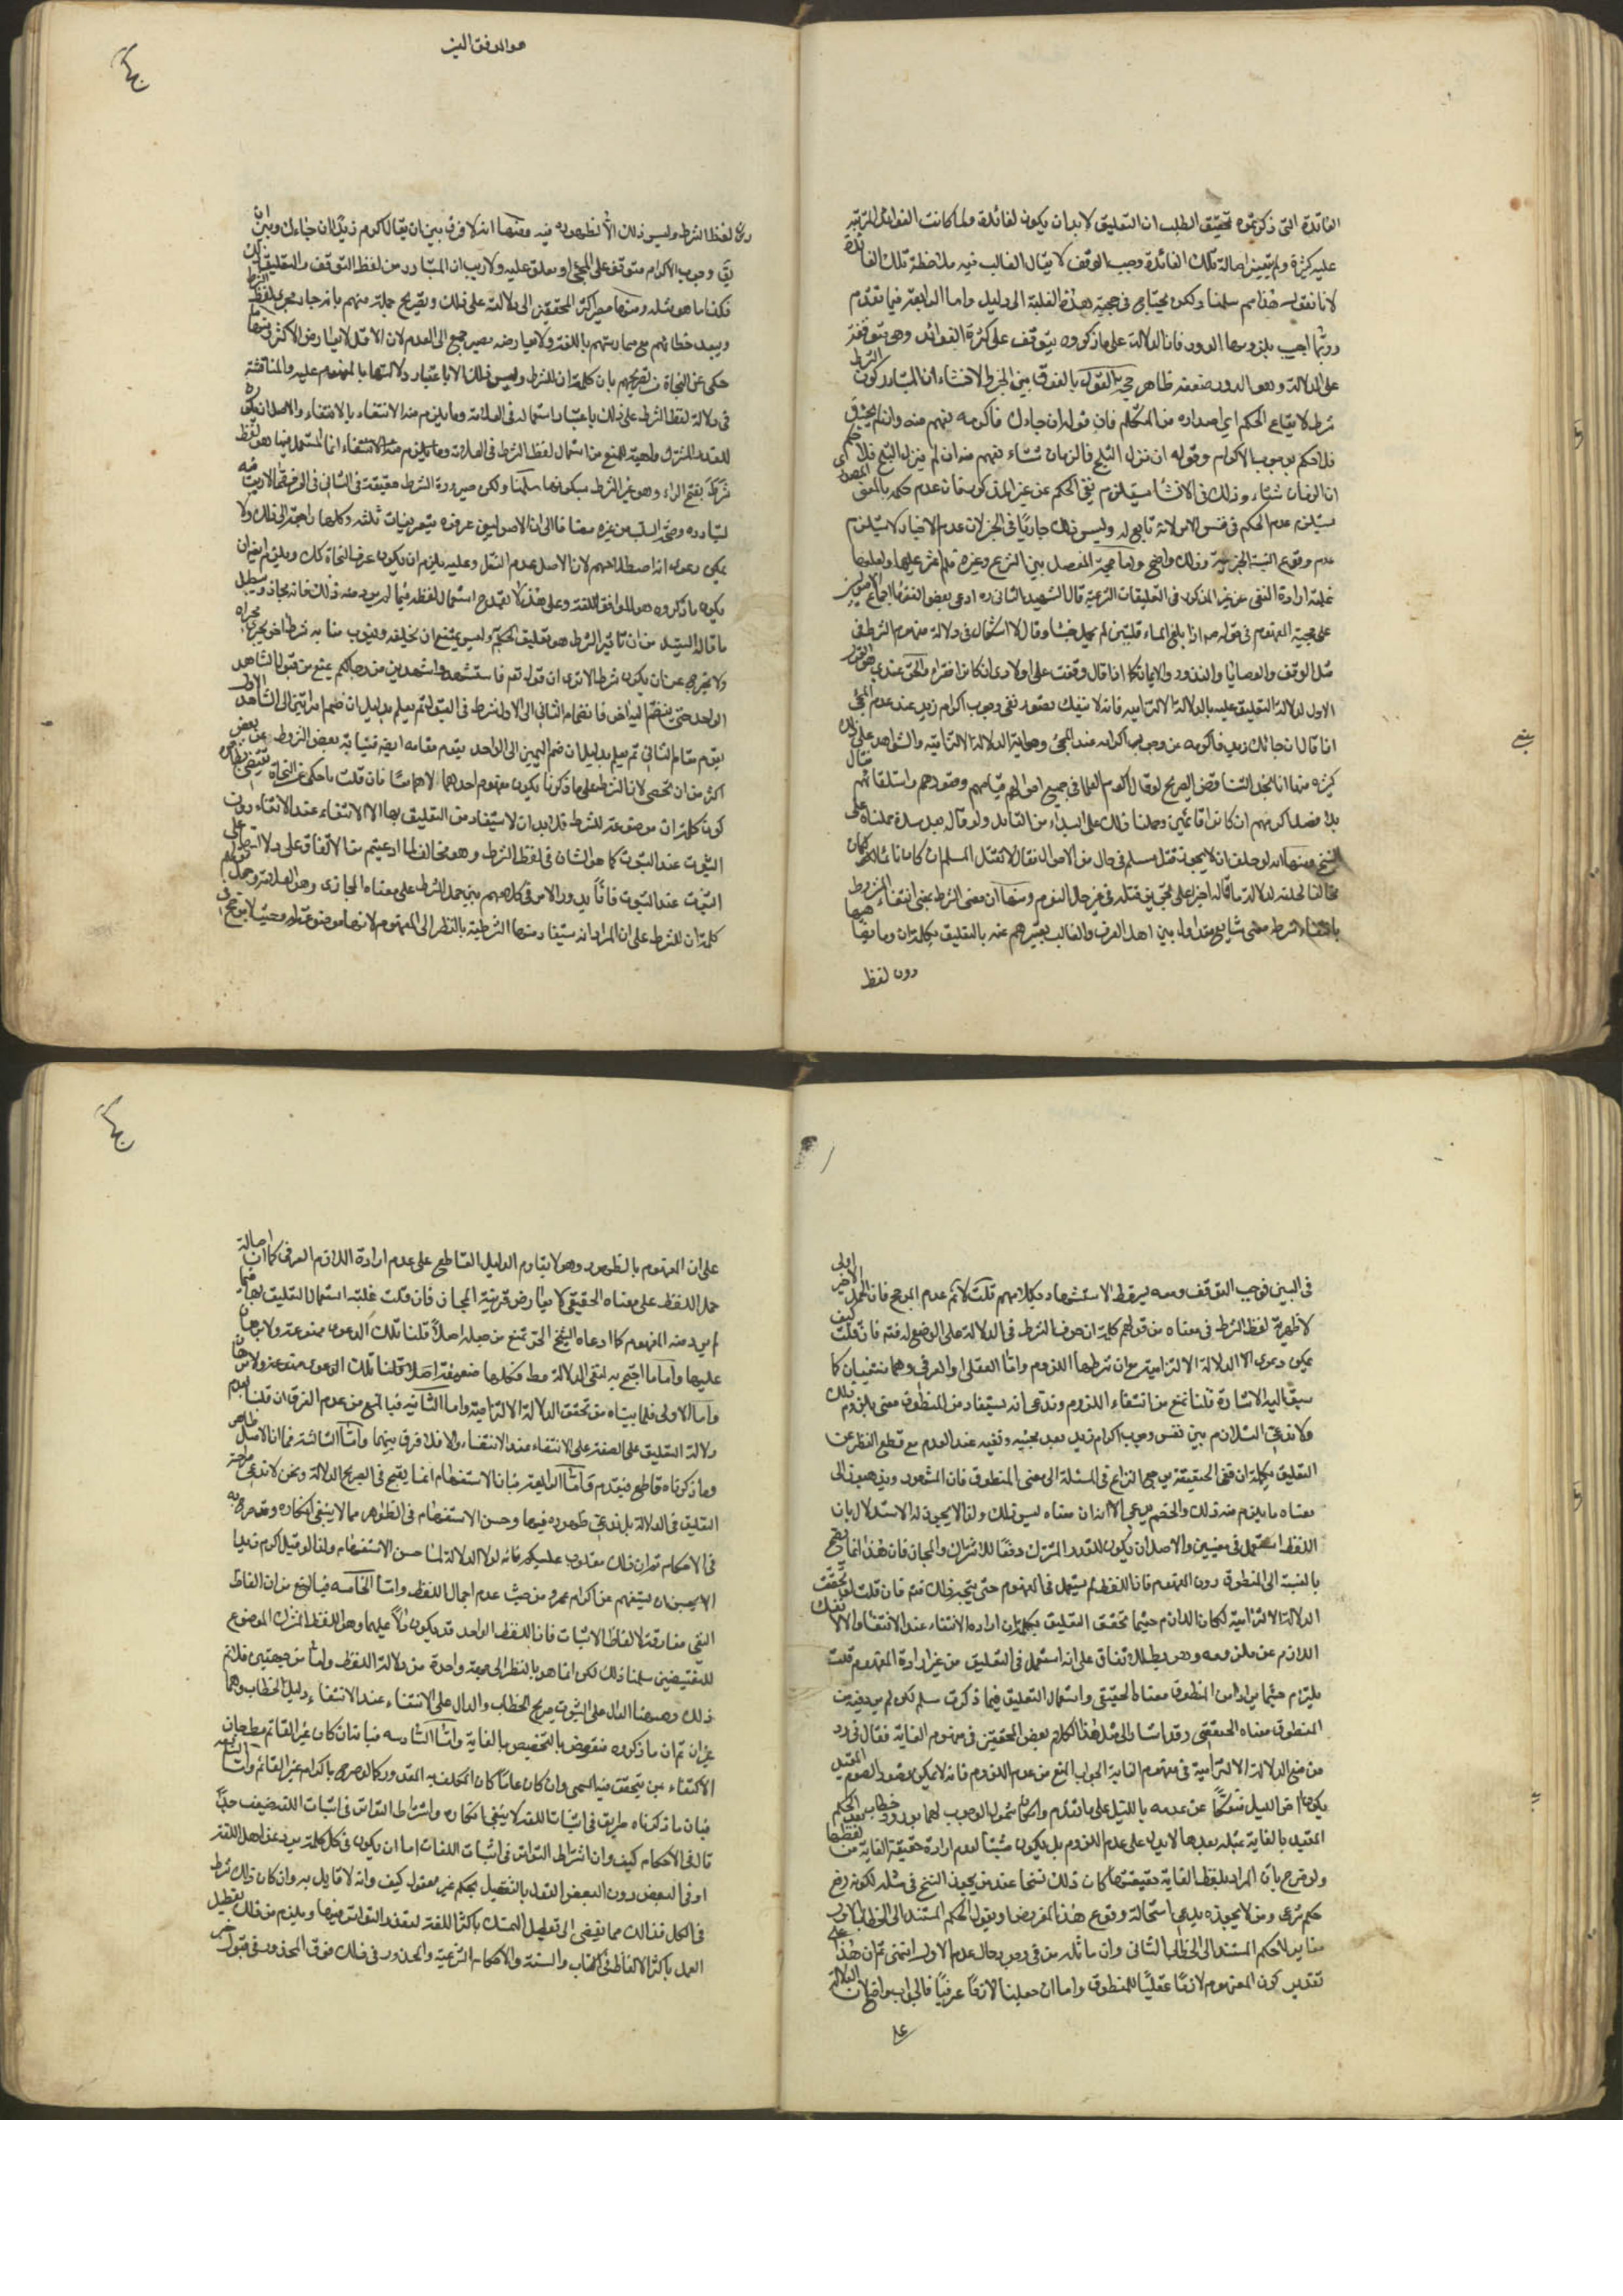 الفائدة التى ذكرتموه تحقيق المطلب ان التعليق لابد ان يكون لفائدة ولما كانت الفوائد المترتبة
عليه كثيرة ولم يتبين اصالة تلك الفائدة وجب التوقف لا يقال الغالب فيه ملاحظة تلك الفائدة
لانا نقول هذا مم سلمنا ولكن يحتاج فى حجية هذه الغلبة الى دليل واما الرابعة فيما تقدم
وربما اجيب بلزوم الدور فان الدلالة على ما ذكروه يتوقف على كثرة الفوائد وهى متوقفة
على الدلالة وهو الدور وضعفه ظاهر حجة القول بالفرق بين الخبر والانشاء ان المتبادر كون الشرط
شرطا لايقاع الحكم اى اصداره من المتكلم فان قوله ان جاءك فاكرمه يفهم منه وان لم يجئك
فلا حكم بوجوب الاكرام وقوله ان نزل الثلج فالزمان شتاء يفهم منه ان لم ينزل الثلج فلا حكم
ان الزمان شتاء وذلك فى الانشاء يستلزم نفى الحكم عن غير المذكور فان عدم حكمه بالمعنى
يستلزم عدم الحكم فى نفس الامر لانه تابع له وليس ذلك جاريا فى الخبر لان عدم الاخبار لا يستلزم
عدم وقوع النسبة الخبرية وذلك واضح واما حجة المفصل بين الشرع وغيره فلم نعثر عليها ولعلها
غلبة ارادة النفى عن غير المذكور فى التعليقات الشرعية قال الشهيد الثانى ره ادعى بعض الفقهاء اجماع الاصوليين
على حجية المفهوم فى قوله ص اذا بلغ الماء قلتين لم يحمل خبثا وقال لا اشكال فى دلالة مفهوم الشرط فى
مثل الوقف والوصايا والنذور والايمان كما اذا قال وقفت على اولادى ان كانوا فقراء
الاول لدلالة التعليق عليه بالدلالة الالتزامية فانه لا ينفك تصور نفى وجوب اكرام زيد عند عدم المجئ
اذا قال ان جائك زيد فاكرمه عن وجوب اكرامه عند المجئ وهو اية الدلالة الالتزامية والشواهد على ذلك
كثيرة منها انا نجد التناقض الصريح لو قال اكرم العلماء فى جميع احوالهم قيامهم وقعودهم واستلقائهم
بلا فصل اكرمهم ان كانوا قائمين وحملنا ذلك على البداء من القائل ولو قال بعد مدة حملناه على
النسخ ومنها انه لو حلف ان لا يجوز قتل مسلم فى حال من الاحوال فقال لا تقتل المسلم ان كان نائما كان
مخالفا لحلفه لدلالة ما قاله اخيرا على تجويز قتله فى غير حال النوم ومنها ان معنى الشرط بمعنى انتفاء المشروط
بانتفاء الشرط معنى شايع متداول بين اهل العرف والغالب تعبيرهم عنه بالتعليق بكلمة ان وما يضاهيها
دون لفظ
هو الموفق المعين
دون لفظ الشرط وليس ذلك الا لظهوره فيه ومنها انه لا فرق بين ان يقال اكرم زيدا ان جاءك وبين ان
يق وجوب الاكرام متوقف على المجئ او معلق عليه ولا ريب ان المتبادر من لفظ التوقف والتعليق ذلك
فكذا ما هو مثله ومنها مصير اكثر المحققين الى دلالته على ذلك وتصريح جملة منهم بانه جار مجرى لفظ الشرط
ويبعد خطائهم مع ممارستهم باللغة ولا يعارضه مصير جمع الى العدم لان الاقل لا يعارض الاكثر ومنها ما
حكى عن النحاة من تصريحهم بان كلمة ان للشرط وليس ذلك الا باعتبار دلالتها بالمفهوم عليه والمناقشة
فى دلالة لفظ الشرط على ذلك باعتبار استعماله فى العلامة وما يلزم منه الانتفاء بالانتفاء والاصل ان يكون
للقدر المشترك واهية للمنع من استعمال لفظ الشرط فى العلامة وما يلزم منه الانتفاء انما المستعمل فيها هو لفظ
شرط بفتح الراء وهو غير الشرط بسكونها سلمنا ولكن صيرورة الشرط حقيقة فى الثانى فى العرف مما لا ريب فيه
لتبادره وصحة السلب عن غيره مضافا الى ان الاصوليين عرفوه بتعريفات ثلثة وكلها راجعة الى ذلك ولا
يمكن دعوى انه اصطلاحهم لان الاصل عدم النقل وعليه يلزم ان يكون عرف النحاة كك ويلزم ايض ان
يكون ما ذكروه هو الموافق للغة وعلى هذا لا يقدح استعمال لفظه فيما لم يرد منه ذلك فانه مجاز ويبطل
ما قاله السيد من ان تاثير الشرط هو تعليق الحكم به وليس يمتنع ان يخلفه وينوب منابه شرط اخر يجرى مجراه
ولا يخرج عن ان يكون شرطا الا ترى ان قوله تعم فاستشهدوا شهيدين من رجالكم يمنع من قبول الشاهد
الواحد حتى ينضم اليه اخر فانضمام الثانى الى الاول شرط فى القبول ثم يعلم بدليل ان ضم امراتين الى الشاهد الاول
يقوم مقام الثانى ثم يعلم بدليل ان ضم اليمين الى الواحد يقوم مقامه ايض فنيابة بعض الشروط عن بعض
اكثر من ان تحصى لان الشرط على ما ذكرنا يكون مفهوم احدهما لا هما معا فان قلت ما حكى عن النحاة
كون كلمة ان موضوعة للشرط فلابد ان لا يستفاد من التعليق بها الا الانتفاء عند الانتفاء دون
الثبوت عند الثبوت كما هو الشان فى لفظ الشرط وهو مخالف لما ادعيتم من الاتفاق على دلالتها على
الثبوت عند الثبوت فاذا يدور الامر فى كلامهم بين حمل الشرط على معناه المجازى وهو العلامة وحمل قولهم
كلمة ان للشرط على ان المراد انه يستفاد منها الشرطية بالنظر الى المفهوم لا انها موضوعة له وحيث لا مرجح فى
فى البين فوجب التوقف ومعه يسقط الاستشهاد بكلامهم قلت لا نم عدم المرجح فان الحمل الاخير اولى
لاظهرية لفظ الشرط فى معناه من قولهم كلمة ان حرف الشرط فى الدلالة على الوضع له فتم فان قلت كيف
يمكن دعوى الدلالة الالتزامية مع ان شرطها اللزوم واما العقلى او العرفى وهما منتفيان كما
سبق اليه الاشارة قلنا نمنع من انتفاء اللزوم وندعى انه يستفاد من المنطوق معنى يلزم ذلك
ولا ندعى التلازم بين نفس وجوب اكرام زيد بعد مجيئه ونفيه عند العدم مع قطع النظر عن
التعليق بكلمة ان ففى الحقيقة يرجع النزاع فى المسئلة الى معنى المنطوق فان المشهور ويذهبون الى
معناه ما يلزم منه ذلك والخصم يدعى الا ان معناه ليس ذلك ولذا لا يجوز له الاستدلال بان
اللفظ استعمل فى معنيين والاصل ان يكون للقدر المشترك دفعا للاشتراك والمجاز فان هذا انما يصح
بالنسبة الى المنطوق دون المفهوم فان اللفظ لم يستعمل فى المفهوم حتى يتجه ذلك فتم فان قلت لو تحققت
الدلالة الالتزامية لكان اللازم حيثما تحقق التعليق بكلمة ان ارادة الانتفاء عند الانتفاء والا لانفك
اللازم عن ملزومه وهو بط للاتفاق على انه استعمل فى التعليق من غير ارادة المفهوم قلت
يلزم حيثما يراد من المنطوق معناه الحقيقى واستعمال التعليق فيما ذكرت مسلم لكن لم يرد من
المنطوق معناه الحقيقى وقد اشار الى مثل هذا الكلام بعض المحققين فى مفهوم الغاية فقال فى رد
من منع الدلالة الالتزامية فى مفهوم الغاية الجواب المنع من عدم اللزوم فانه لا يمكن تصور الصوم المقيد
بكون اخره الليل منفكا عن عدمه بالليل على ما تقدم وامكان شمول الوجوب لهما بورود خطاب بعد الحكم
المقيد بالغاية قبله بعدها لا يدل على عدم اللزوم بل يكون مثبتا لعدم ارادة حقيقة الغاية من لفظها
ولو صرح بان المراد بلفظ الغاية حقيقتها كان ذلك نسخا عند من يجوز النسخ فى مثله لكونه رفع
حكم شرعى ومن لا يجوزه يدعى استحالة وقوع هذا الفرض ويقول الحكم المستند الى الخطاب الاول
مغاير للحكم المستند الى الخطاب الثانى وان ماثله من فى وجوبه حال عدم الاول انتهى ثم ان هذا على
تقدير كون المفهوم لازما عقليا للمنطوق واما ان جعلناه لازما عرفيا فالجواب واضح لان الدلالة
على
على ان المفهوم بالظهور وهو لا يقاوم الدليل القاطع على عدم ارادة اللازم العرفى كما ان اصالة
حمل اللفظ على معناه الحقيقى لا يعارض قرينة المجاز فان قلت غلبة استعمال التعليق بها فيما
لم يرد منه المفهوم كما ادعاه الشيخ الحر تمنع من حمله اصلا قلنا تلك الدعوى ممنوعة ولا برهان
عليها واما ما احتج به لنفى الدلالة مط فكلها ضعيفة
واما الاولى فلما بيناه من تحقق الدلالة الالتزامية واما الثانية فبالمنع من عدم الفرق ان قلنا بعدم
دلالة التعليق على الصفة على الانتفاء عند الانتفاء والا فلا فرق بينهما واما الثالثة فما ان الاصل ظاهر
وما ذكرناه قاطع فيقدم واما الرابعة فبان الاستفهام انما يقبح فى الصريح الدلالة ونحن لا ندعى صراحة
التعليق فى الدلالة بل ندعى ظهوره فيها وحسن الاستفهام فى الظواهر مما لا ينبغى انكاره وقد صرح به
فى الاحكام ثم ان ذلك مقلوب عليكم فانه لولا الدلالة لما حسن الاستفهام ولذا لو قيل اكرم زيدا
لا يحسن ان يستفهم عن اكرام عمرو من حيث عدم اجمال اللفظ واما الخامسة فبالمنع من ان الفاظ
النفى مفارقة لالفاظ الاثبات فان اللفظ الواحد قد يكون دالا عليهما وهو اللفظ المشترك الموضوع
للنقيضين سلمنا ذلك لكن انما هو بالنظر الى جهة واحدة من دلالة اللفظ واما من جهتين فلا نم
ذلك وههنا الدال على الثبوت صريح الخطاب والدال على الانتفاء عند الانتفاء دليل الخطاب وهما
غيران ثم ان ما ذكروه منقوض بالتخصيص بالغاية واما السادسة فبان
الاكتفاء
فبان ما ذكرناه طريق فى اثبات اللغة لا ينبغى انكاره واشتراط التواتر فى اثبات اللغة ضعيف جدا
قال فى الاحكام كيف وان اشتراط التواتر فى اثبات اللغات اما ان يكون فى كل كلمة يرد عن اهل اللغة
او فى البعض دون البعض القول بالتفصيل تحكم غير معقول كيف وانه لا قايل به وان كان ذلك شرط
فى الكل فذلك مما يفضى الى تعطيل التمسك باكثر اللغة لتعذر التواتر فيها ويلزم من ذلك تعطيل
العمل باكثر الالفاظ فى الكتاب والسنة والاحكام الشرعية والمحذور فى ذلك فوق المحذور فى قبول خبر